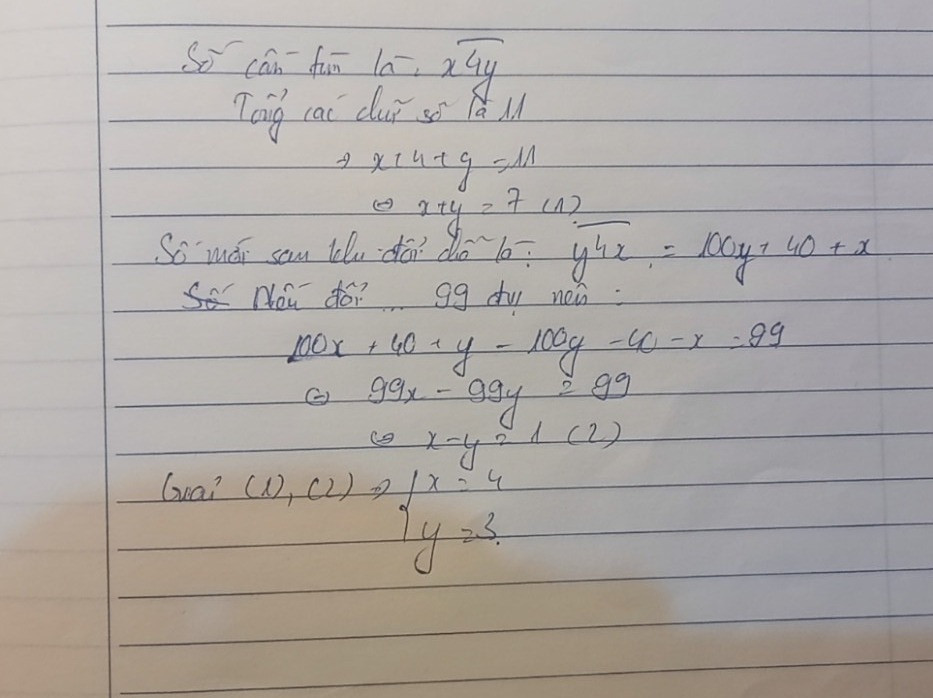 Số cần tìm là: x4y
Tổng các chữ số là 11
⇒ x+4+y = 11
⇔ x+y = 7 (1)
Số mới sau khi đổi chỗ là: y4x = 100y + 40 + x
Số Nếu đổi ... 99 đv nên:
100x + 40 + y - 100y - 40 - x = 99
⇔ 99x - 99y = 99
⇔ x-y = 1 (2)
Giải (1), (2) ⇒ { x = 4
y = 3.